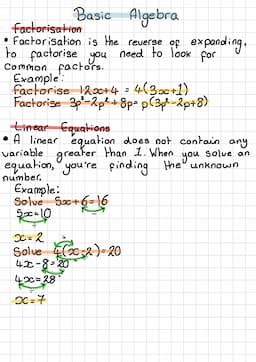 Basic Algebra
Factorisation
• Factorisation is the reverse of expanding,
to factorise you need to look for
common factors.
Example:
Factorise 12x+4 = 4(3x+1)
Factorise 3p³-2p²+8p= p(3p²-2p+8)
Linear Equations
• A linear equation does not contain any
variable greater than 1. When you solve an
equation, you're finding the unknown
number.
Example:
Solve 5x+6=16
5x=10
x=2
Solve 4(x-2)=20
4x-8=20
4x=28
x=7